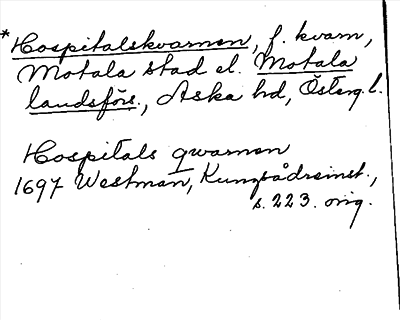 *Hospitalskvarnen, f. kvarn,
Motala stad el. Motala
landsförs., Aska hd, Östergl.
Hospitals qwarnen
1697 Westman, Kungsådreinst.,
s. 223. orig.